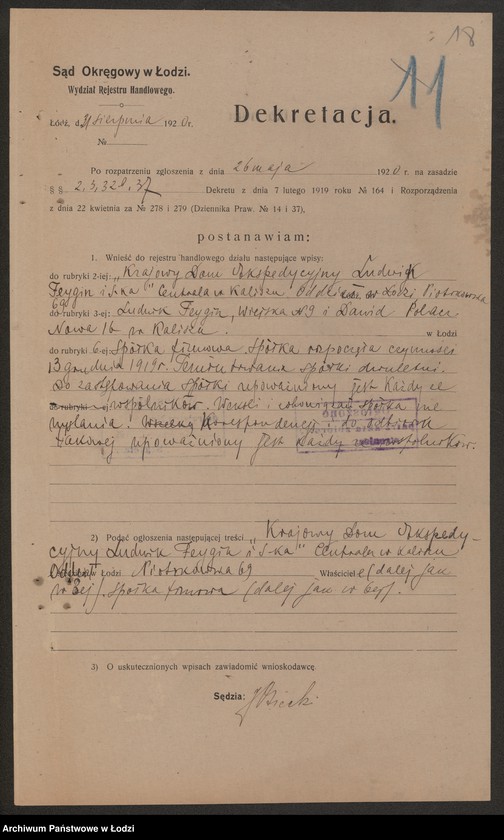 18
11
Sąd Okręgowy w Łodzi.
Wydział Rejestru Handlowego.
Dekretacja.
Łódź, d. 31 sierpnia 1920 r.
№
Po rozpatrzeniu zgłoszenia z dnia 26 maja 1920 r. na zasadzie
§ § 2, 3, 32 i 37 Dekretu z dnia 7 lutego 1919 roku № 164 i Rozporządzenia
z dnia 22 kwietnia za № 278 i 279 (Dziennika Praw. № 14 i 37),
postanawiam:
1. Wnieść do rejestru handlowego działu następujące wpisy:
do rubryki 2-iej: „Krajowy Dom Ekspedycyjny Ludwik
Feygin i S-ka" Centrala w Kaliszu, Oddział w Łodzi, Piotrkowska
69
do rubryki 3-ej: Ludwik Feygin, Wiejska № 9 i Dawid
Nowa 16 w Kaliszu. w Łodzi
do rubryki 6-ej Spółka firmowa Spółka rozpoczęła czynności
13 grudnia 1919 r. trwania spółki
Do zastępowania spółki upoważniony jest każdy ze
do rubryki wspólników. Weksli i zobowiązań spółka nie
wydaje. korespondencji i do odbioru
upoważniony jest każdy ze wspólników.
2) Podać ogłoszenia następującej treści „Krajowy Dom Ekspedy-
cyjny Ludwik Feygin i S-ka" Centrala w Kaliszu
Oddział w Łodzi Piotrkowska 69 Właściciel (dalej jak
w 3ej). Spółka firmowa (dalej jak w 6ej).
3) O uskutecznionych wpisach zawiadomić wnioskodawcę.
Sędzia:
Archiwum Państwowe w Łodzi